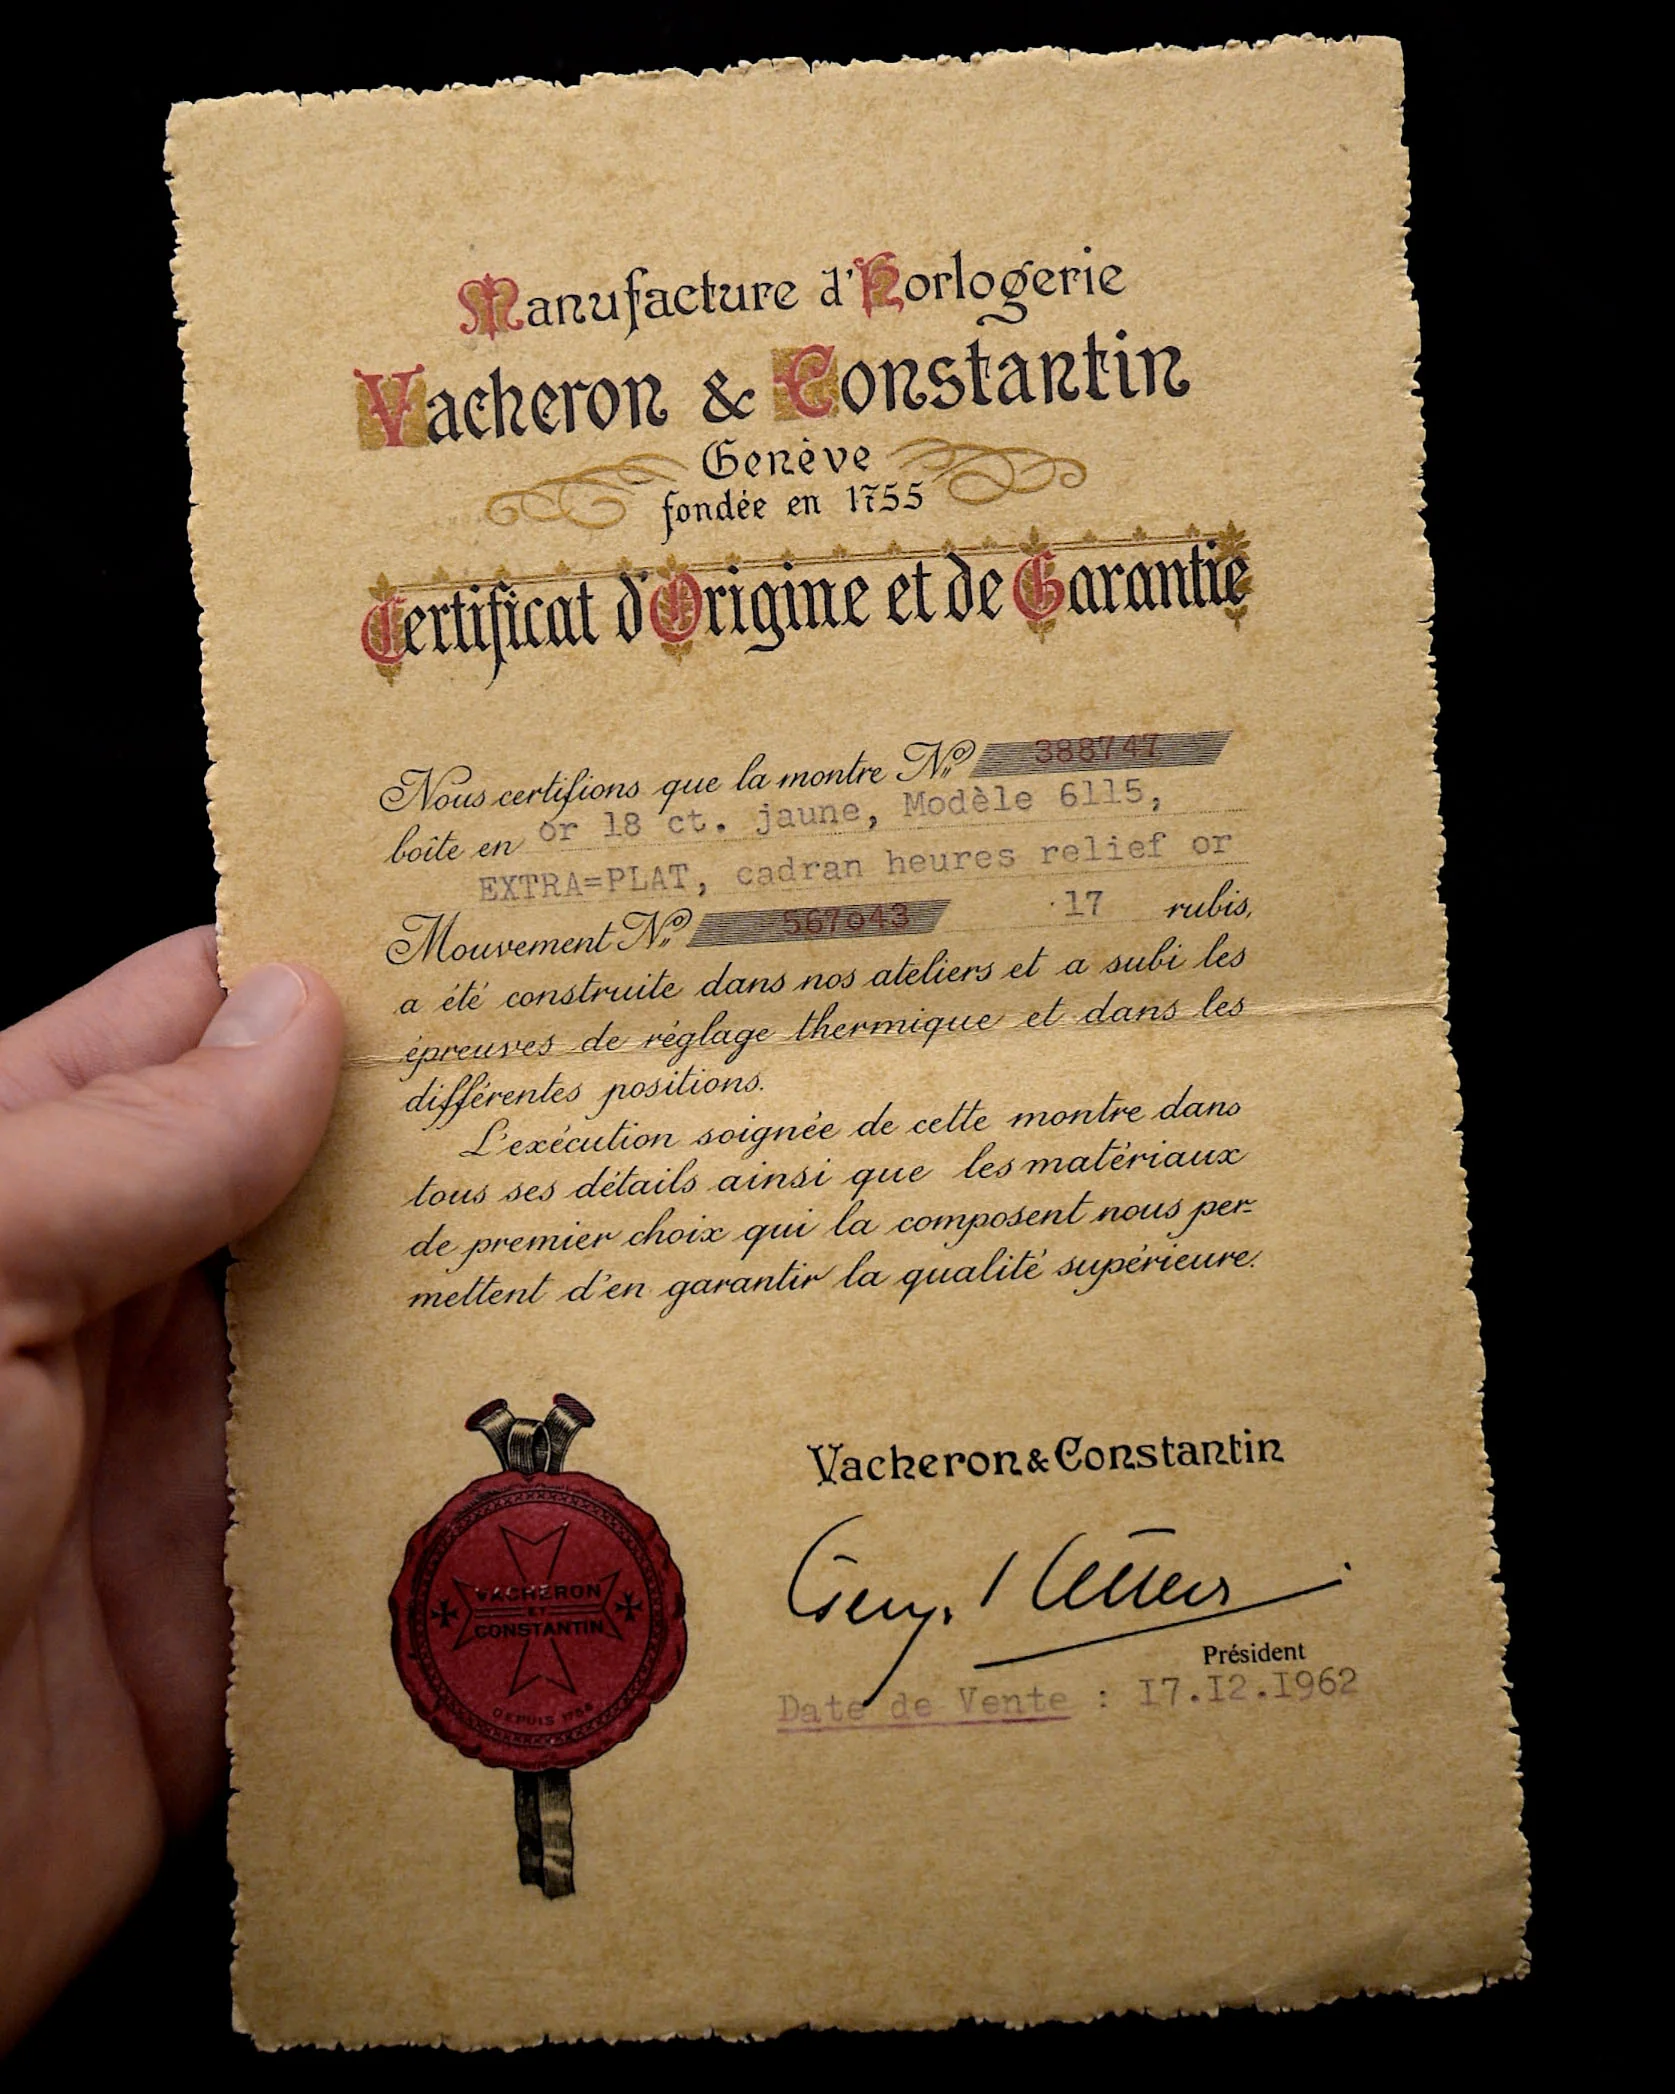 Manufacture d'Horlogerie
Vacheron & Constantin
Genève
fondée en 1755
Certificat d'Origine et de Garantie
Nous certifions que la montre No 388747
boîte en or 18 ct. jaune, Modèle 6115,
EXTRA=PLAT, cadran heures relief or
Mouvement No 567o43 17 rubis,
a été construite dans nos ateliers et a subi les
épreuves de réglage thermique et dans les
différentes positions.
L'exécution soignée de cette montre dans
tous ses détails ainsi que les matériaux
de premier choix qui la composent nous per-
mettent d'en garantir la qualité supérieure.
VACHERON
ET
CONSTANTIN
DEPUIS
Vacheron & Constantin
Président
Date de Vente : I7.I2.I962